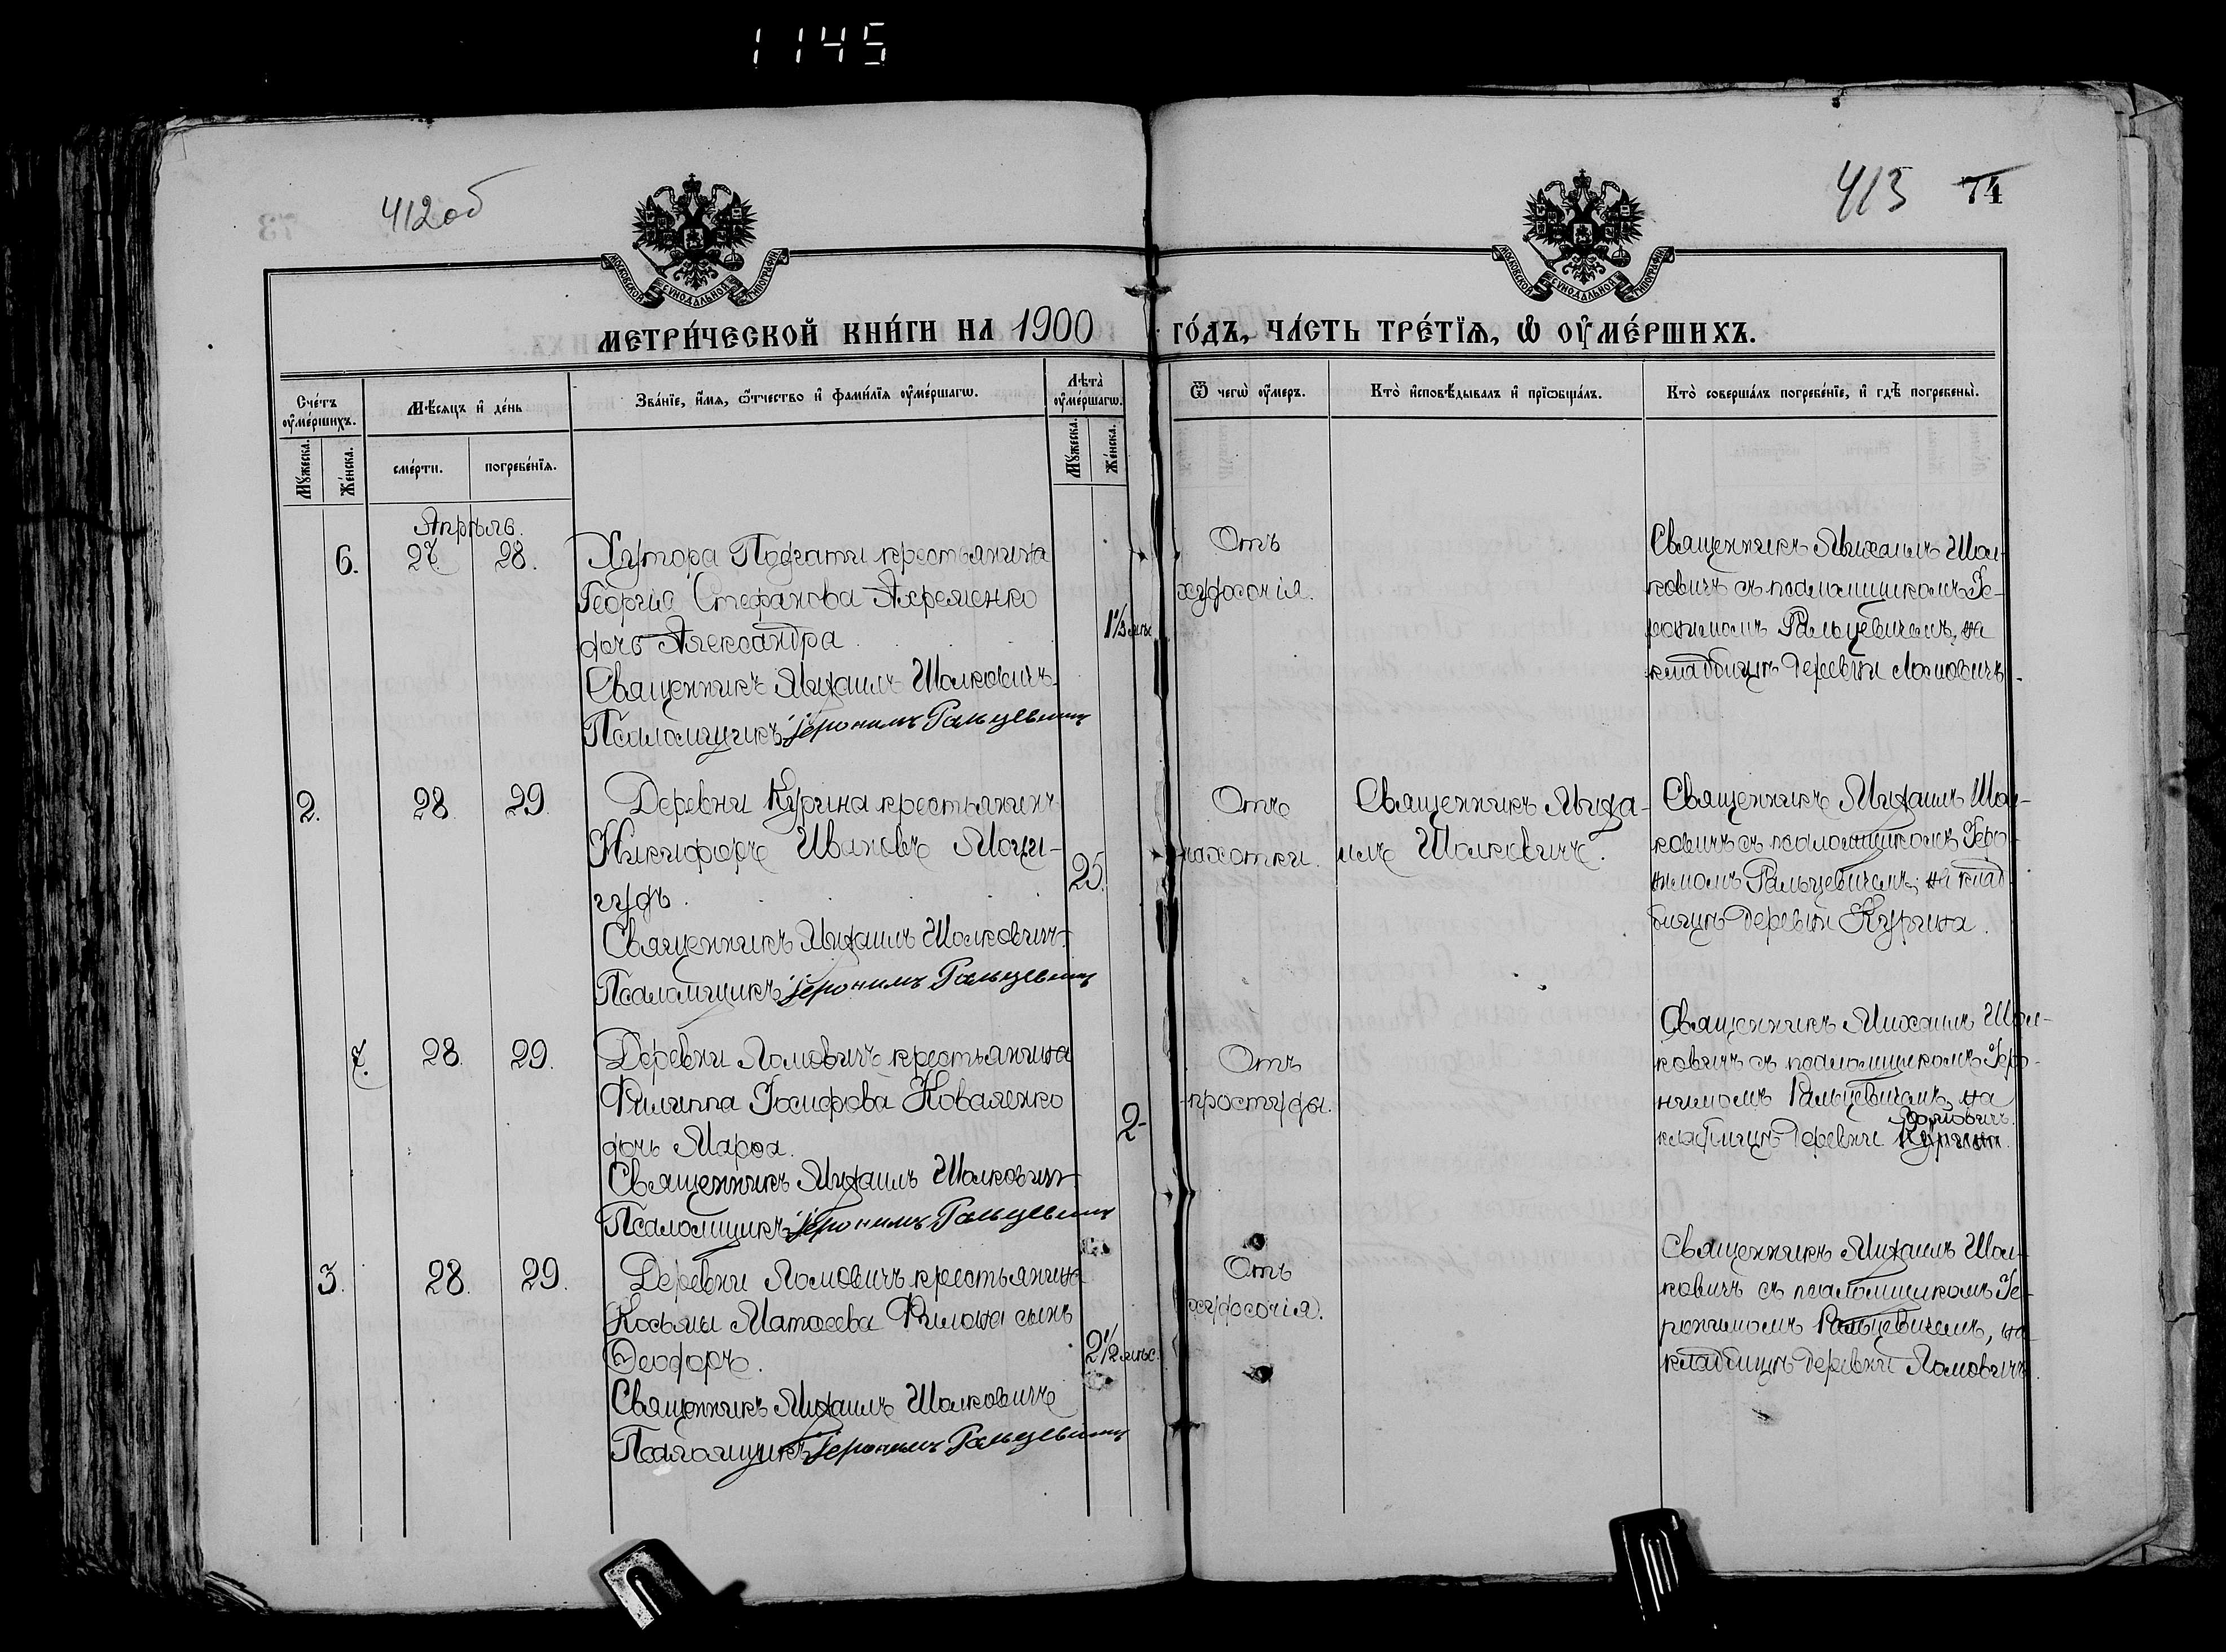 1145
412об
413 74
МОСКОВСКОЙ СУНОДАЛЬНОЙ ТИПОГРАФІИ
МОСКОВСКОЙ СУНОДАЛЬНОЙ ТИПОГРАФІИ
МЕТРИ́ЧЕСКОЙ КНИ́ГИ НА 1900 ГО́ДЪ, ЧА́СТЬ ТРЕ́ТІѦ, Ѡ҆ ОУ҆МЕ́РШИХЪ.
Сче́тъ оу҆ме́ршихъ.
Мꙋ́жеска.
Же́нска.
Мѣ́сѧцъ и҆ де́нь
сме́рти.
погребе́нїѧ.
Зва́нїе, и҆́мѧ, ѻ҆́тчество и҆ фами́лїѧ оу҆ме́ршагѡ.
Лѣ́та оу҆ме́ршагѡ.
Мꙋ́жеска.
Же́нска.
Ѿ чегѡ̀ оу҆́меръ.
Кто̀ и҆сповѣ́дывалъ и҆ прїѡбща́лъ.
Кто̀ соверша́лъ погребе́нїе, и҆ гдѣ̀ погребены̀.
Апрѣль.
6. 27. 28.
Хутора крестьянина
Георгія Стефанова Ахременко
дочь Александра.
Священникъ Михаилъ Шалковичъ
Псаломщикъ Іеронимъ Гальцевичъ
1½ мѣс.
Отъ
худосочія.
Священникъ Михаилъ Шал-
ковичъ съ псаломщикомъ Іе-
ронимомъ Гальцевичемъ, на
кладбищѣ деревни Ломовичъ.
2. 28. 29.
Деревни Курина крестьянинъ
Никифоръ Ивановъ
25.
Священникъ Михаилъ Шалковичъ
Псаломщикъ Іеронимъ Гальцевичъ
Отъ
чахотки.
Священникъ Миха-
илъ Шалковичъ.
Священникъ Михаилъ Шал-
ковичъ съ псаломщикомъ Іеро-
нимомъ Гальцевичемъ, на клад-
бищѣ деревни Курина.
7. 28. 29.
Деревни Ломовичъ крестьянина
Филиппа Іосифова Коваленко
дочь Марѳа.
2
Священникъ Михаилъ Шалковичъ
Псаломщикъ Іеронимъ Гальцевичъ
Отъ
простуды.
Священникъ Михаилъ Шал-
ковичъ съ псаломщикомъ Іеро-
нимомъ Гальцевичемъ, на
Ломовичъ.
кладбищѣ деревни Курина.
3. 28. 29.
Деревни Ломовичъ крестьянина
Косьмы Матѳеева Филона сынъ
Ѳеодоръ.
2½ мѣс.
Священникъ Михаилъ Шалковичъ
Псаломщикъ Іеронимъ Гальцевичъ
Отъ
худосочія.
Священникъ Михаилъ Шал-
ковичъ съ псаломщикомъ Іе-
ронимомъ Гальцевичемъ, на
кладбищѣ деревни Ломовичъ.